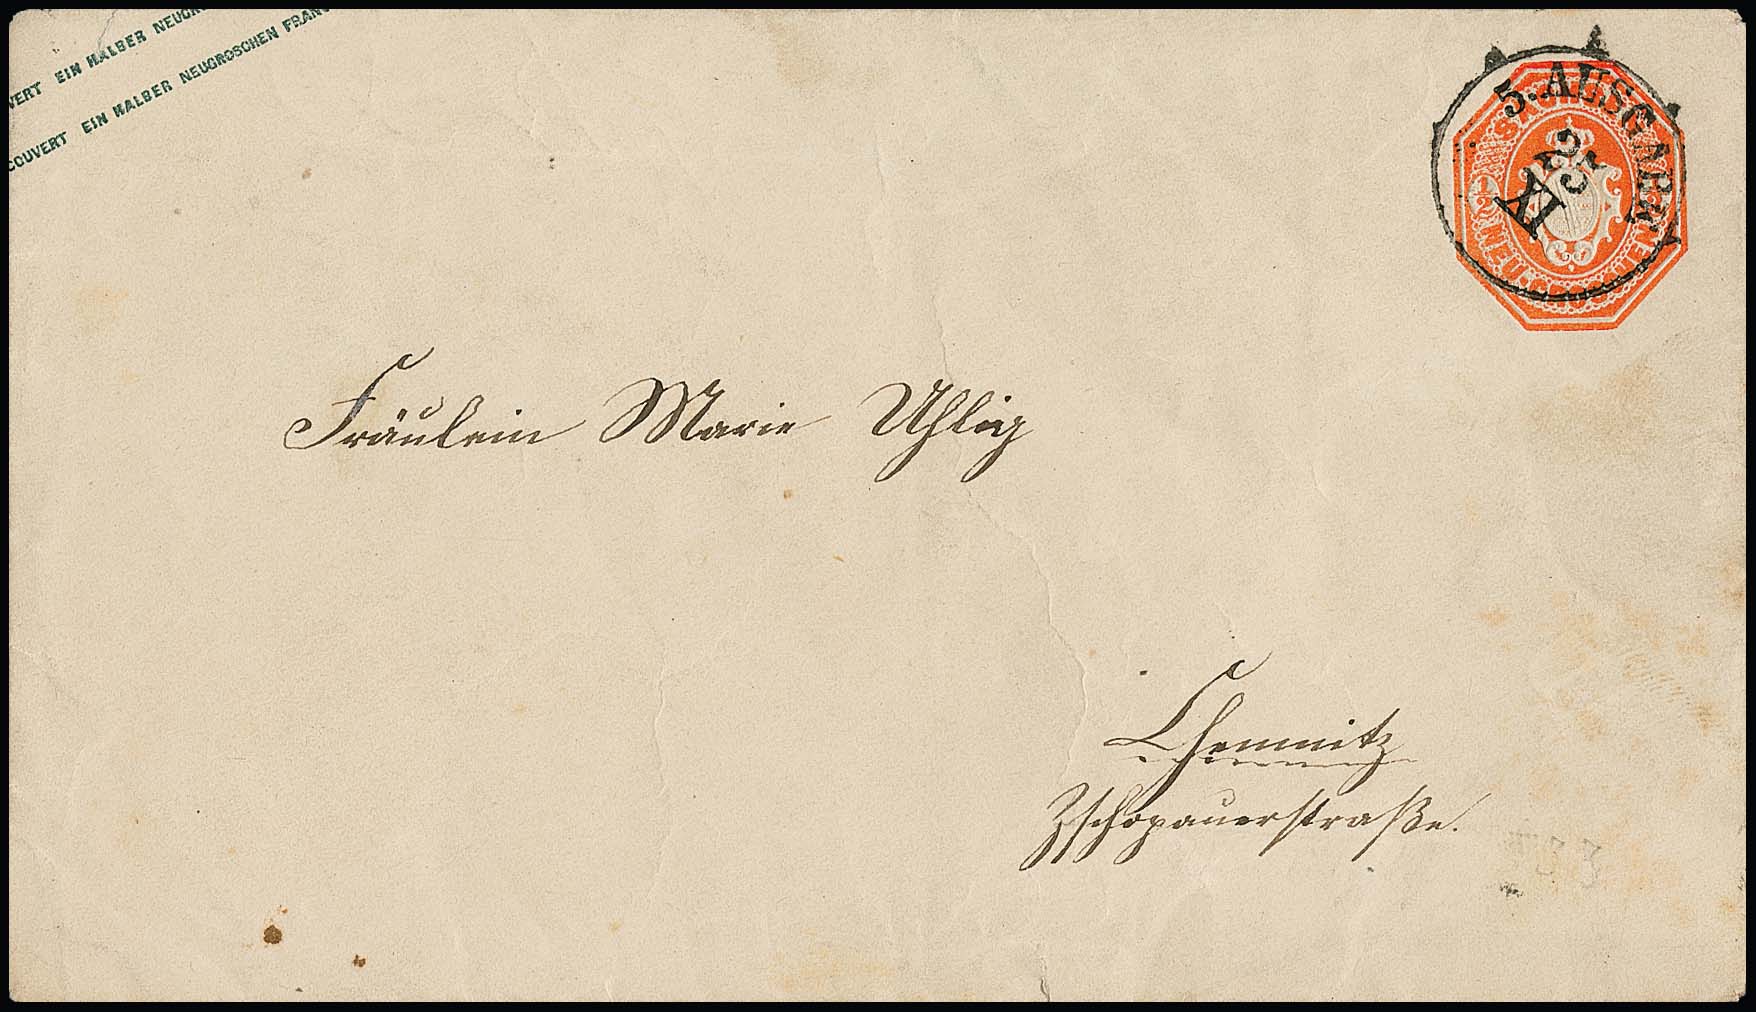 VERT EIN HALBER NEUGRO
COUVERT EIN HALBER NEUGROSCHEN FRANCO
5. AUSGABE.
25
IX
SACHSEN
1/2
NEU-GROSCHEN
Fräulein Marie Uhlig
Chemnitz
Zschopauerstraße.